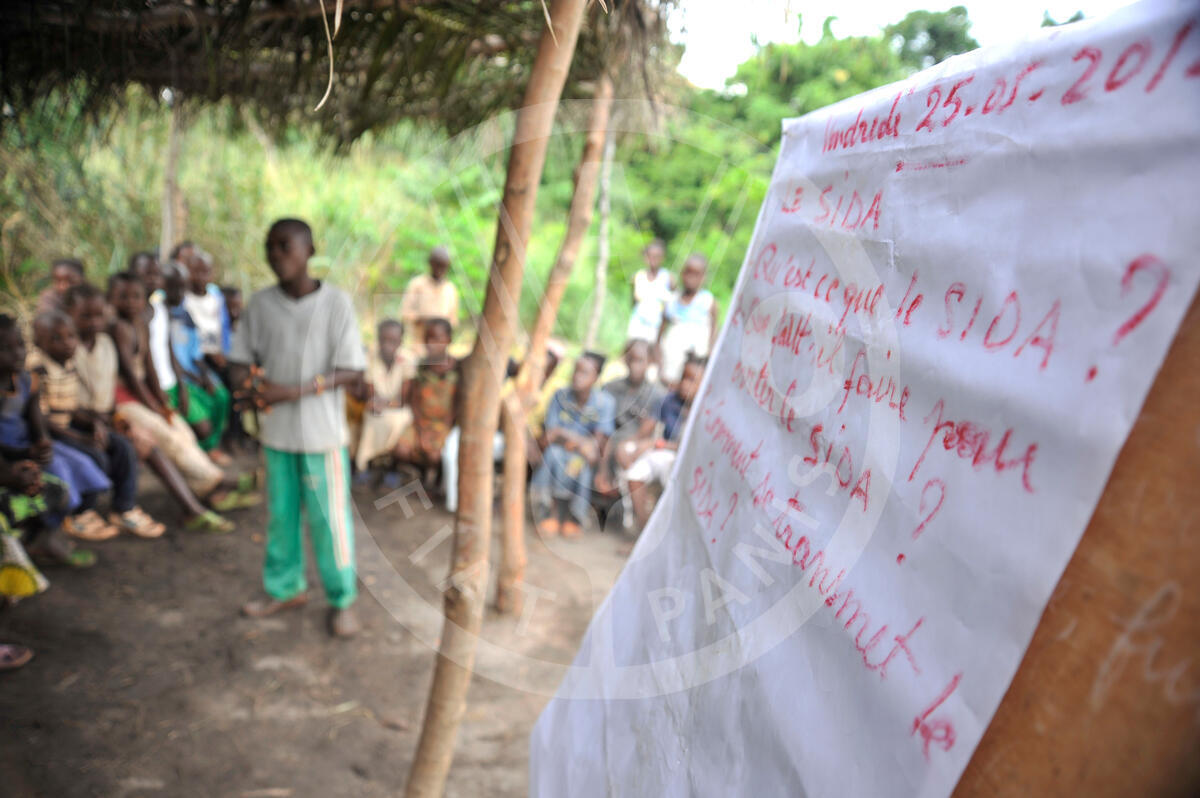 Vendredi 25.05.201
Le SIDA
Qu'est ce que le SIDA ?
faut-il faire pour
le SIDA ?
Comment se transmet le
SIDA ?
FLET PANIS